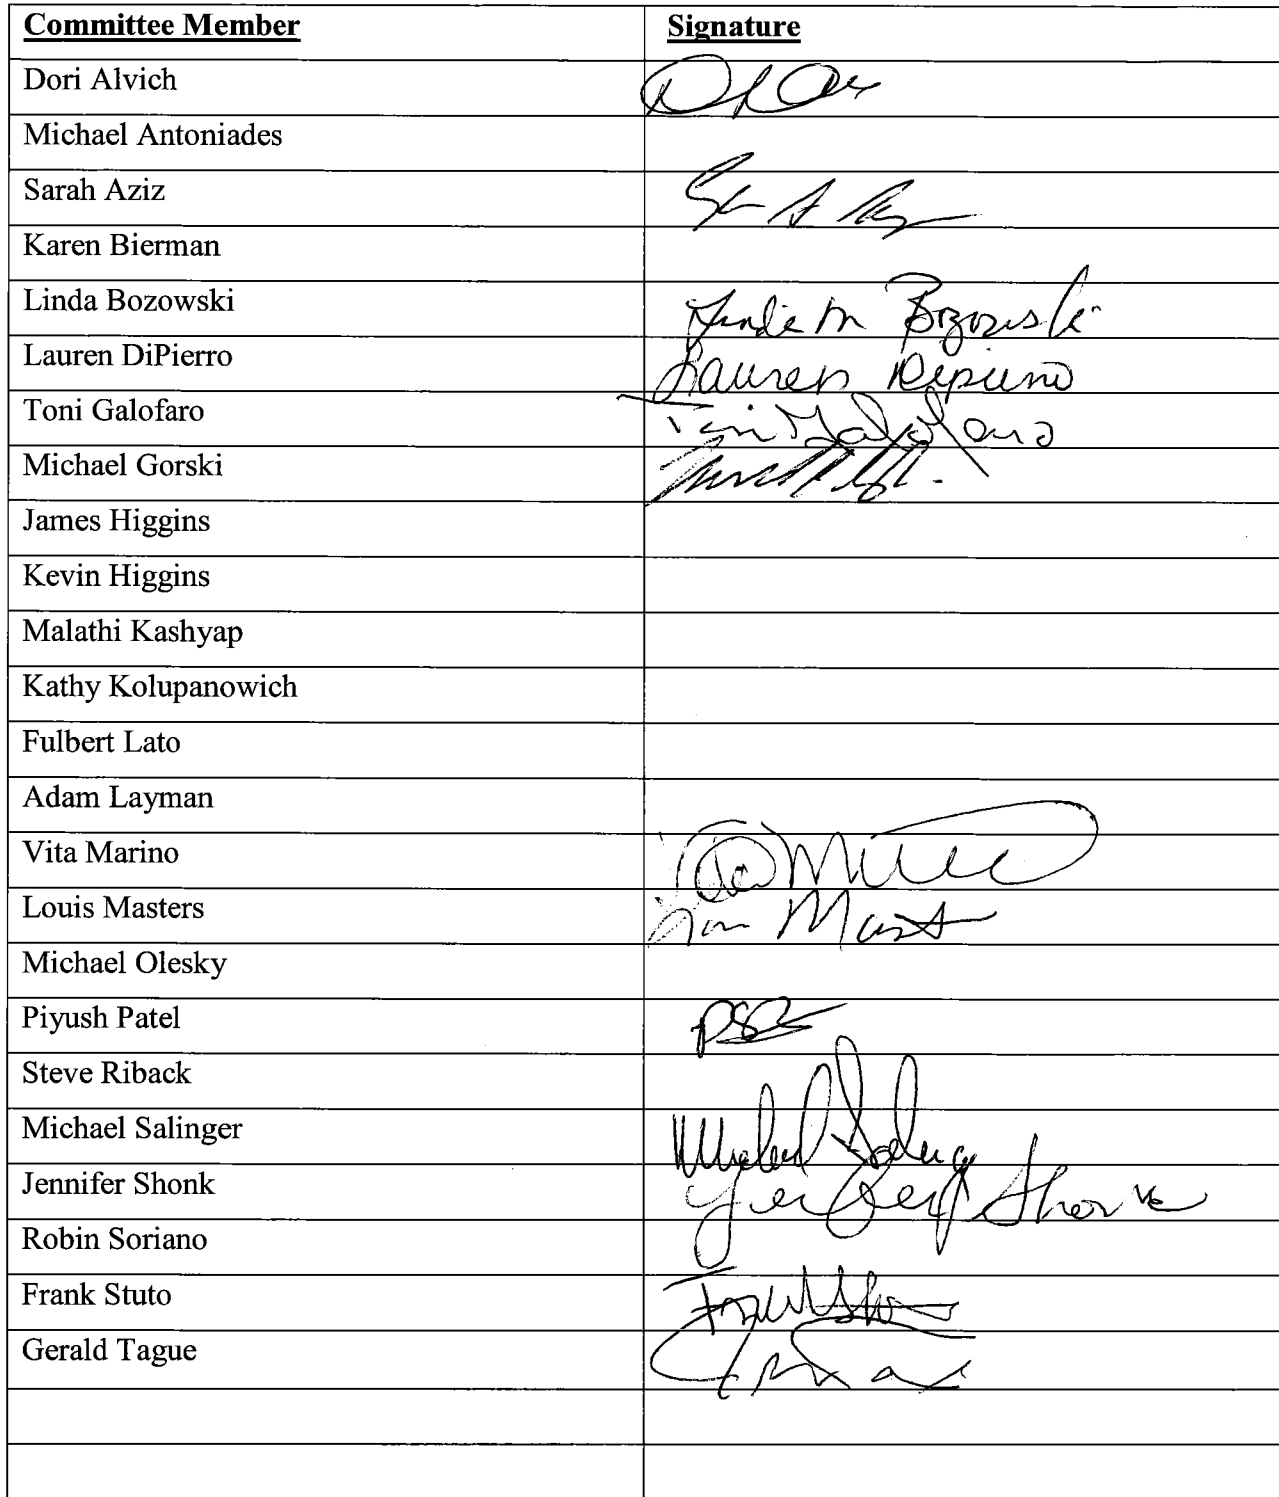 Committee Member Signature
Dori Alvich
Michael Antoniades
Sarah Aziz
Karen Bierman
Linda Bozowski Linda M Bozowski
Lauren DiPierro Lauren DiPierro
Toni Galofaro Toni Galofaro
Michael Gorski
James Higgins
Kevin Higgins
Malathi Kashyap
Kathy Kolupanowich
Fulbert Lato
Adam Layman
Vita Marino
Louis Masters
Michael Olesky
Piyush Patel
Steve Riback
Michael Salinger Michael Salinger
Jennifer Shonk Jennifer Shonk
Robin Soriano
Frank Stuto
Gerald Tague